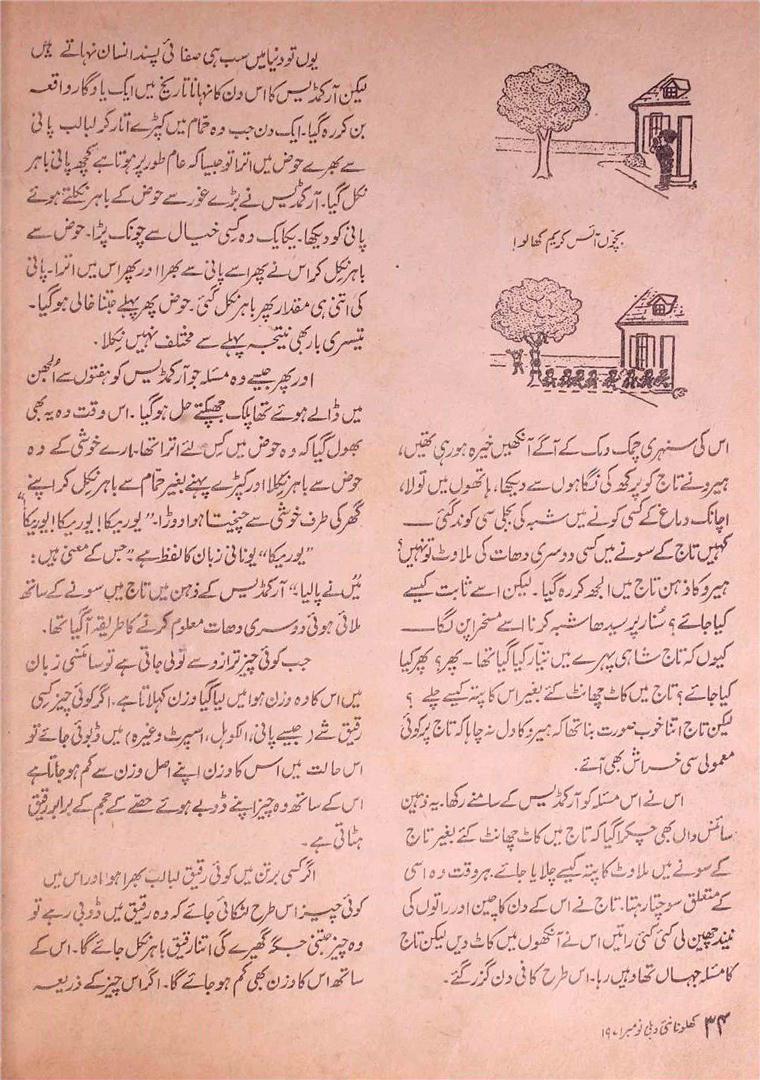 بچّوں آئس کریم کھالو!
اس کی سنہری چمک دمک کے آگے آنکھیں خیرہ ہو رہی تھیں،
ہیرو نے تاج کو پرکھ کی نگاہوں سے دیکھا، ہاتھوں میں تولا،
اچانک دماغ کے کسی کونے میں شبہ کی بجلی سی کوند گئی ــــ
کہیں تاج کے سونے میں کسی دوسری دھات کی ملاوٹ تو نہیں؟
ہیرو کا ذہن تاج میں الجھ کر رہ گیا۔ لیکن اسے ثابت کیسے
کیا جائے؟ سُنار پر سیدھا شبہ کرنا اسے مسخرا پن لگا ــــ
کیوں کہ تاج شاہی پہرے میں تیار کیا گیا تھا ــ پھر؟ پھر کیا
کیا جائے؟ تاج میں کاٹ چھانٹ کئے بغیر اس کا پتہ کیسے چلے؟
لیکن تاج اتنا خوب صورت بنا تھا کہ ہیرو کا دل نہ چاہا کہ تاج پر کوئی
معمولی سی خراش بھی آئے۔
اس نے اس مسئلہ کو آرکمڈیس کے سامنے رکھا۔ یہ ذہین
سائنس داں بھی چکرا گیا کہ تاج میں کاٹ چھانٹ کئے بغیر تاج
کے سونے میں ملاوٹ کا پتہ کیسے چلایا جائے۔ ہر وقت وہ اسی
کے متعلق سوچتا رہتا۔ تاج نے اس کے دن کا چین اور راتوں کی
نیند چھین لی گئی کئی راتیں اس نے آنکھوں میں کاٹ دیں لیکن تاج
کا مسئلہ جہاں تھا وہیں رہا۔ اس طرح کافی دن گزر گئے۔
یوں تو دنیا میں سب ہی صفائی پسند انسان نہاتے ہیں
لیکن آرکمڈیس کا اس دن کا نہانا تاریخ میں ایک یادگار واقعہ
بن کر رہ گیا۔ ایک دن جب وہ حمّام میں کپڑے اتار کر لبالب پانی
سے بھرے حوض میں اترا تو جیسا کہ عام طور پر ہوتا ہے کچھ پانی باہر
نکل گیا۔ آرکمڈیس نے بڑے غور سے حوض کے باہر نکلتے ہوئے
پانی کو دیکھا۔ یکایک وہ کسی خیال سے چونک پڑا۔ حوض سے
باہر نکل کر اس نے پھر اسے پانی سے بھرا اور پھر اس میں اترا۔ پانی
کی اتنی ہی مقدار پھر باہر نکل گئی۔ حوض پھر پہلے جتنا خالی ہو گیا۔
تیسری بار بھی نتیجہ پہلے سے مختلف نہیں نکلا۔
اور پھر جیسے وہ مسئلہ جو آرکمڈیس کو ہفتوں سے اُلجھن
میں ڈالے ہوئے تھا پلک جھپکتے حل ہو گیا۔ اس وقت وہ یہ بھی
بھول گیا کہ وہ حوض میں کس لئے اترا تھا۔ مارے خوشی کے وہ
حوض سے باہر نکلا اور کپڑے پہنے بغیر حمّام سے باہر نکل کر اپنے
گھر کی طرف خوشی سے چیختا ہوا دوڑا۔ "یوریکا! یوریکا! یوریکا"
"یوریکا" یونانی زبان کا لفظ ہے ــ جس کے معنی ہیں:
میں نے پا لیا، آرکمڈیس کے ذہن میں تاج میں سونے کے ساتھ
ملائی ہوئی دوسری دھات معلوم کرنے کا طریقہ آ گیا تھا۔
جب کوئی چیز ترازو سے تولی جاتی ہے تو سائنسی زبان
میں اس کا وہ وزن ہوا میں لیا گیا وزن کہلاتا ہے، اگر کوئی چیز کسی
رقیق شے (جیسے پانی، الکوہل، اسپرٹ وغیرہ) میں ڈبوئی جائے تو
اس حالت میں اس کا وزن اپنے اصل وزن سے کم ہو جاتا ہے
اس کے ساتھ وہ چیز اپنے ڈوبے ہوئے حصّے کے حجم کے برابر رقیق
ہٹاتی ہے۔
اگر کسی برتن میں کوئی رقیق لبالب بھرا ہو اور اس میں
کوئی چیز اس طرح لٹکائی جائے کہ وہ رقیق میں ڈوبی رہے تو
وہ چیز جتنی جگہ گھیرے گی اتنا رقیق باہر نکل جائے گا۔ اس کے
ساتھ اس کا وزن بھی کم ہو جائے گا۔ اگر اس چیز کے ذریعہ
۳۴ کھلونا نئی دہلی نومبر ۱۹۷۱